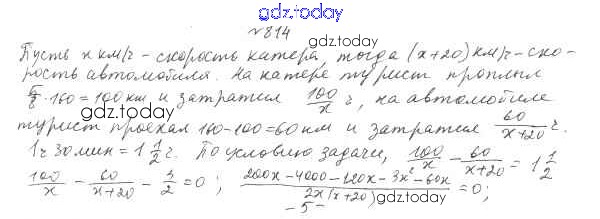 gdz.today
№814
gdz.today
Пусть x км/ч - скорость катера, тогда (x+20) км/ч - ско-
рость автомобиля. На катере турист проплыл
5/8·160=100 км и затратил 100/x ч, на автомобиле
gdz.today
турист проехал 160-100=60 км и затратил 60/(x+20) ч.
gdz.today
1 ч 30 мин = 1 1/2 ч. По условию задачи, 100/x - 60/(x+20) = 1 1/2
gdz.today
100/x - 60/(x+20) - 3/2 = 0; (200x-4000-120x-3x²-60x)/(2x(x+20)) = 0;
gdz.today
-5-